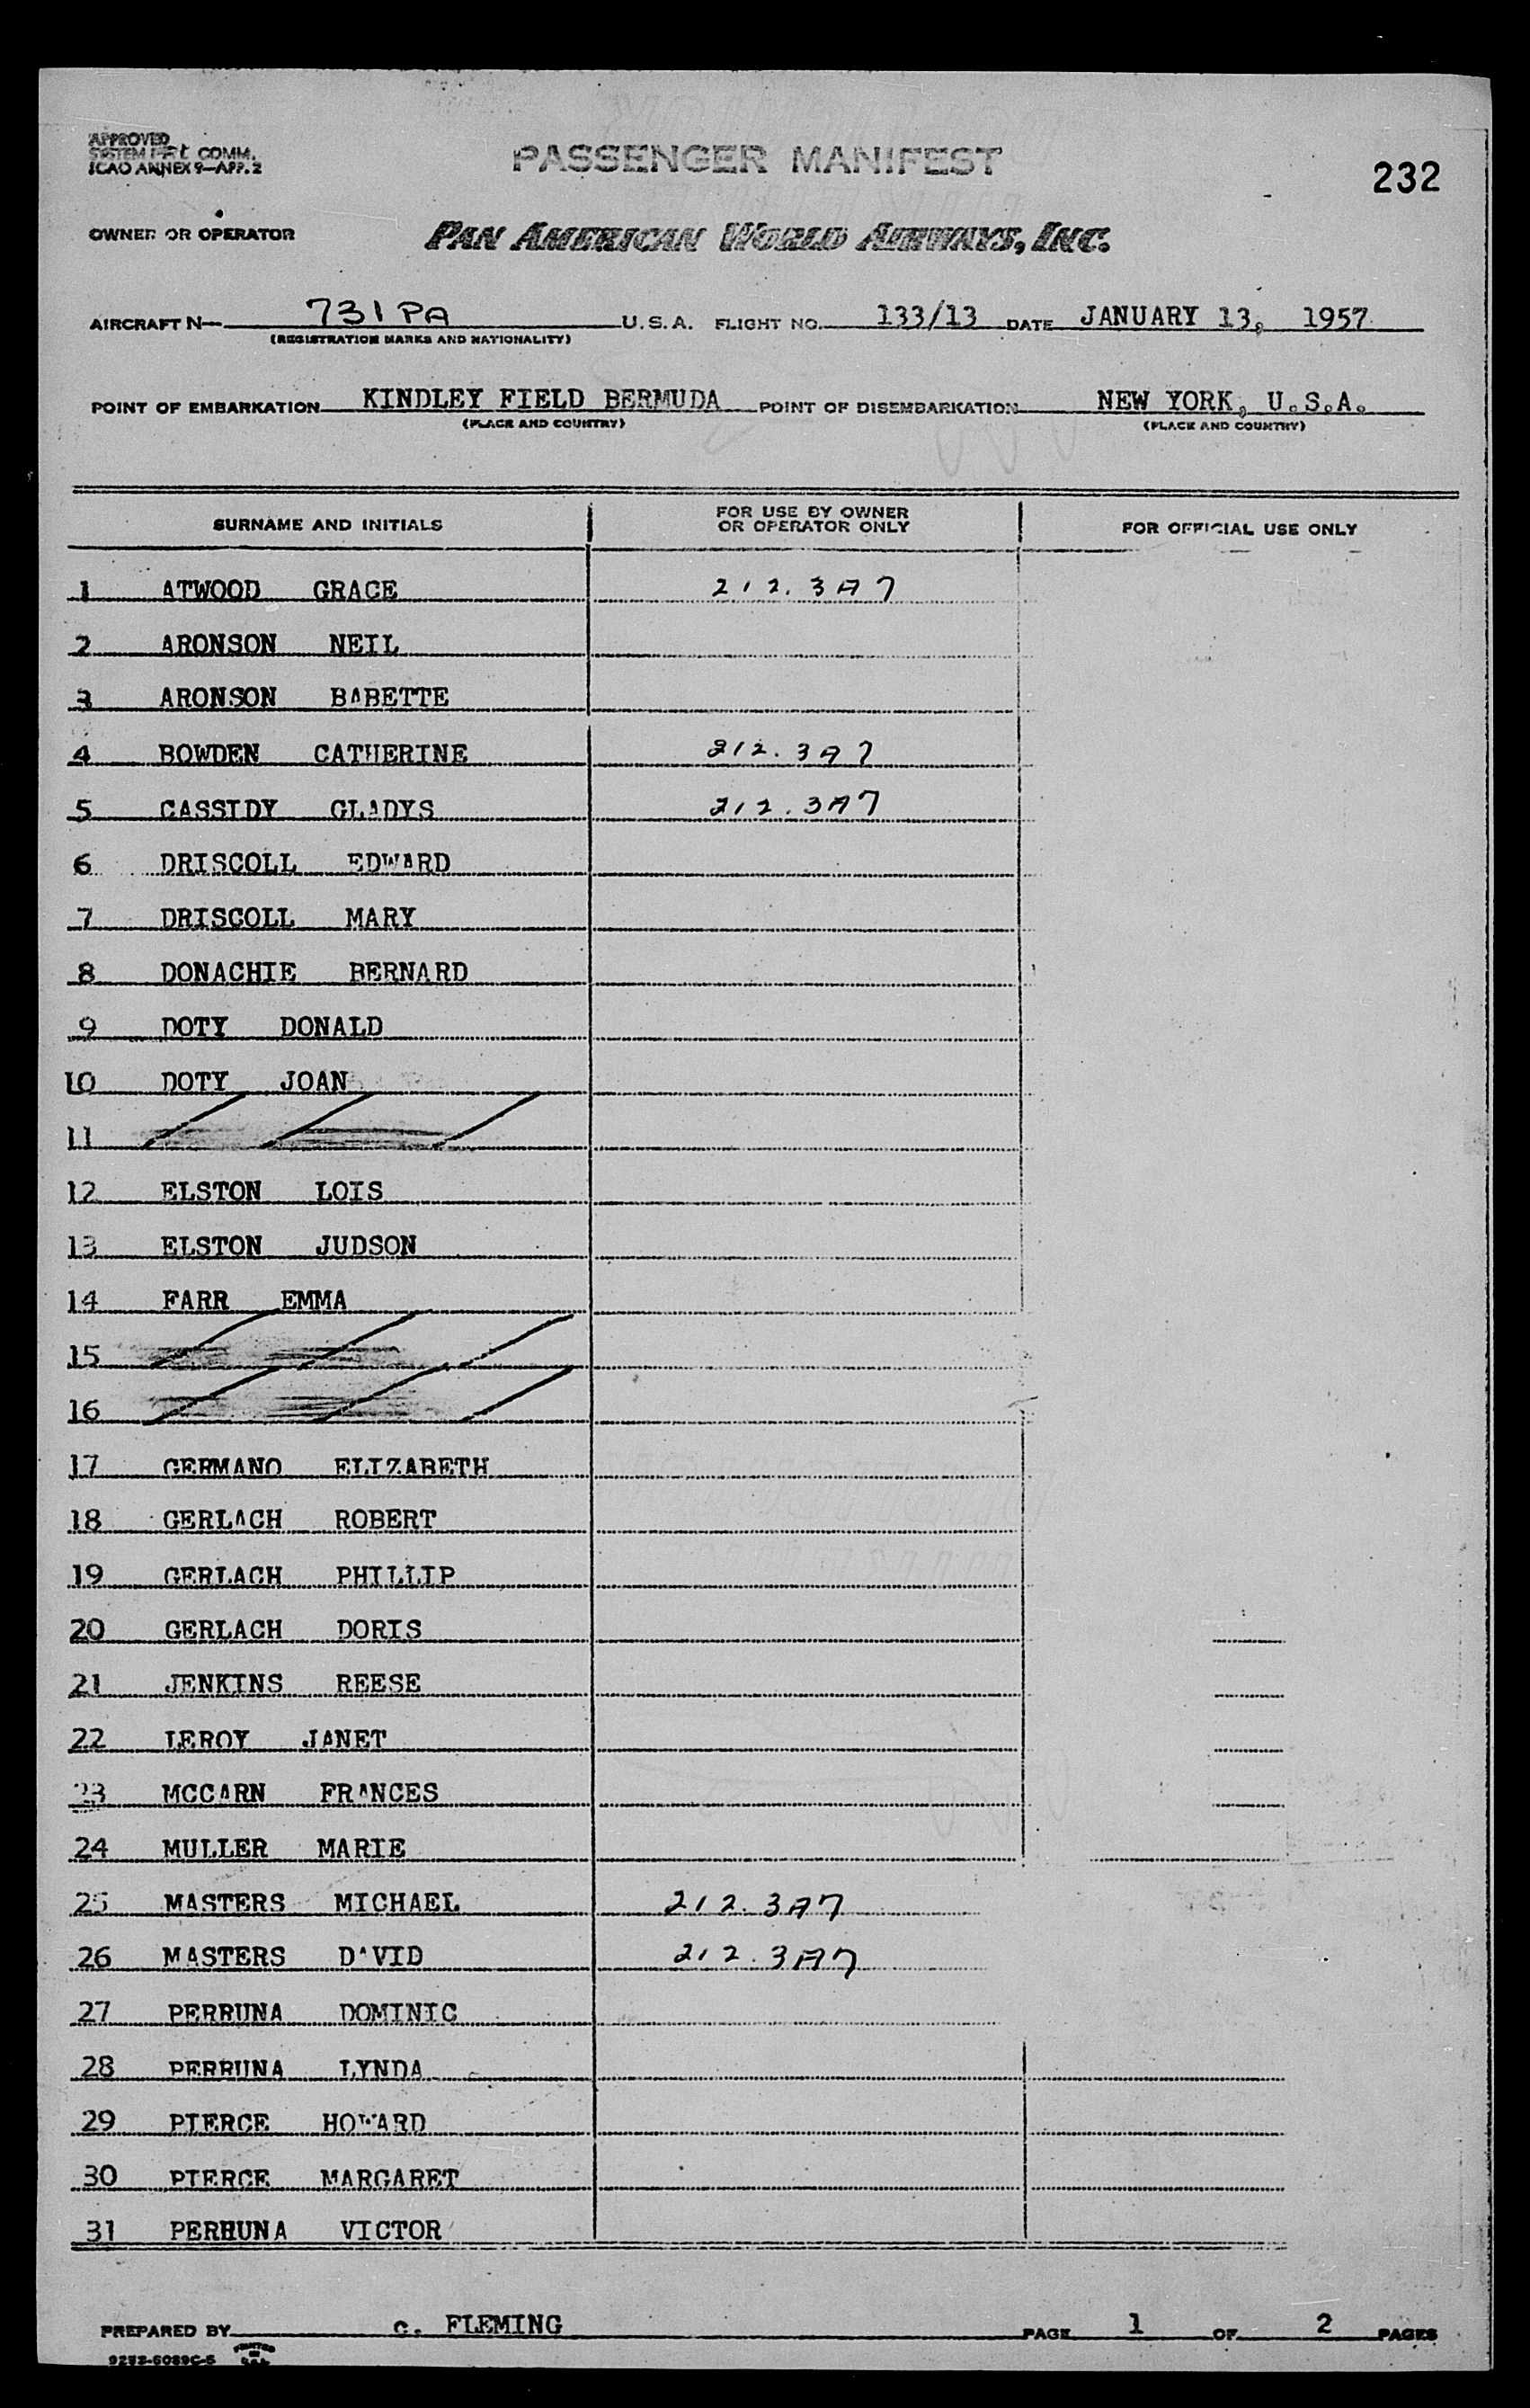 APPROVED
SYSTEM COMM.
ICAO ANNEX 9—APP. 2
PASSENGER MANIFEST
232
OWNER OR OPERATOR PAN AMERICAN WORLD AIRWAYS, INC.
AIRCRAFT N— 731PA U.S.A. FLIGHT NO. 133/13 DATE JANUARY 13, 1957
(REGISTRATION MARKS AND NATIONALITY)
POINT OF EMBARKATION KINDLEY FIELD BERMUDA POINT OF DISEMBARKATION NEW YORK, U.S.A.
(PLACE AND COUNTRY) (PLACE AND COUNTRY)
SURNAME AND INITIALS FOR USE BY OWNER OR OPERATOR ONLY FOR OFFICIAL USE ONLY
1 ATWOOD GRACE 212.3A7
2 ARONSON NEIL
3 ARONSON BABETTE
4 BOWDEN CATHERINE 212.3A7
5 CASSIDY GLADYS 212.3A7
6 DRISCOLL EDWARD
7 DRISCOLL MARY
8 DONACHIE BERNARD
9 DOTY DONALD
10 DOTY JOAN
11
12 ELSTON LOIS
13 ELSTON JUDSON
14 FARR EMMA
15
16
17 GERMANO ELIZABETH
18 GERLACH ROBERT
19 GERLACH PHILLIP
20 GERLACH DORIS
21 JENKINS REESE
22 LEROY JANET
23 MCCARN FRANCES
24 MULLER MARIE
25 MASTERS MICHAEL 212.3A7
26 MASTERS DAVID 212.3A7
27 PERRUNA DOMINIC
28 PERRUNA LYNDA
29 PIERCE HOWARD
30 PIERCE MARGARET
31 PERRUNA VICTOR
PREPARED BY C. FLEMING PAGE 1 OF 2 PAGES